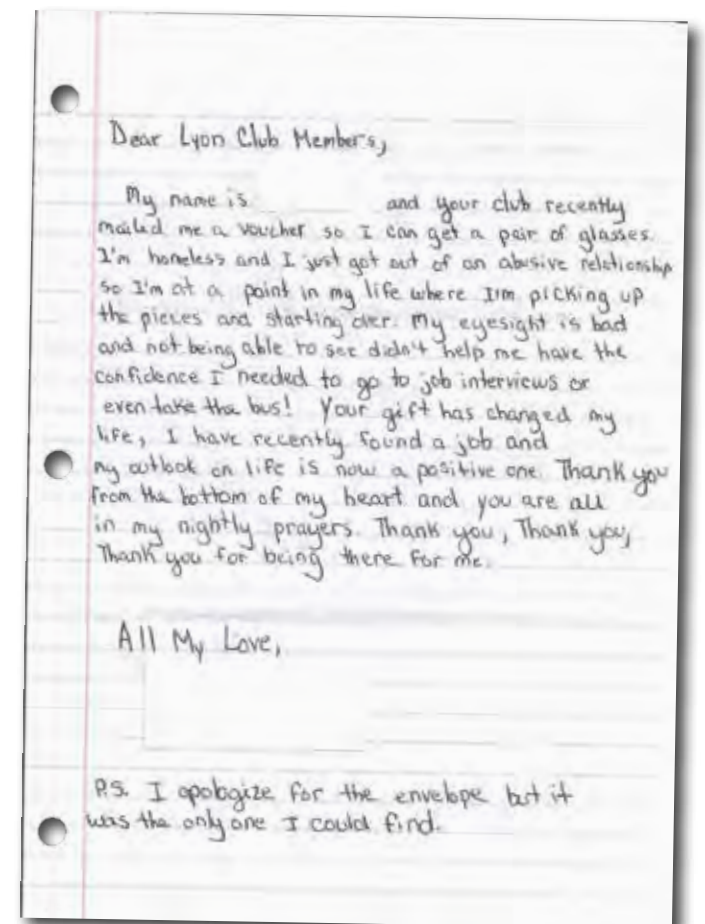 Dear Lyon Club Members,
My name is and your club recently
mailed me a voucher so I can get a pair of glasses.
I'm homeless and I just got out of an abusive relationship
so I'm at a point in my life where I'm picking up
the pieces and starting over. My eyesight is bad
and not being able to see didn't help me have the
confidence I needed to go to job interviews or
even take the bus! Your gift has changed my
life, I have recently found a job and
my outlook on life is now a positive one. Thank you
from the bottom of my heart and you are all
in my nightly prayers. Thank you, Thank you,
Thank you for being there for me.
All My Love,
P.S. I apologize for the envelope but it
was the only one I could find.